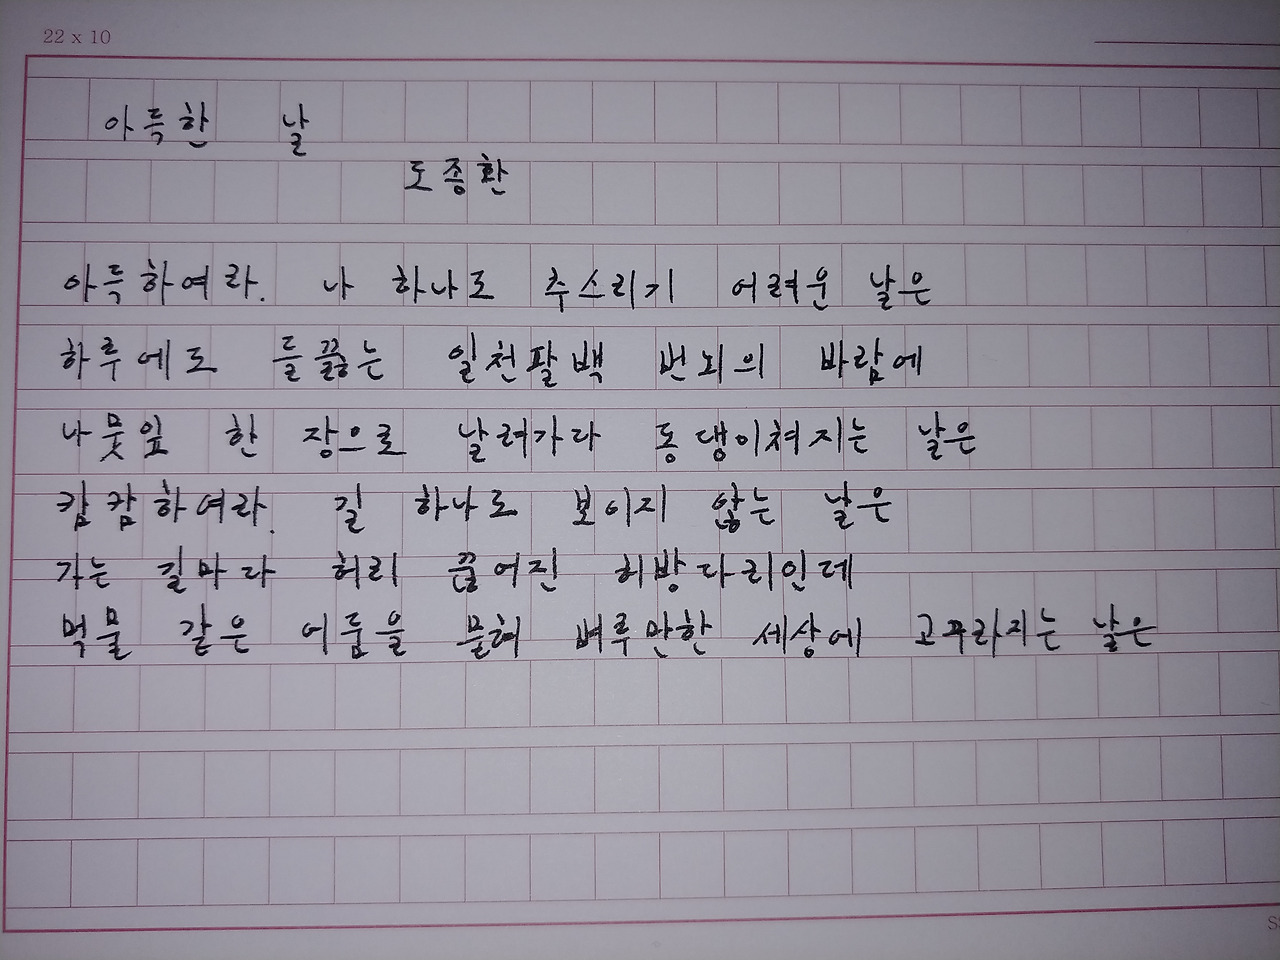 22 x 10
아득한 날
도종환
아득하여라. 나 하나도 추스리기 어려운 날은
하루에도 들끓는 일천팔백 번뇌의 바람에
나뭇잎 한 장으로 날려가라 동댕이쳐지는 날은
캄캄하여라. 길 하나도 보이지 않는 날은
가는 길마다 허리 끊어진 허방다리인데
먹물 같은 어둠을 묻혀 벼루만한 세상에 고꾸라지는 날은